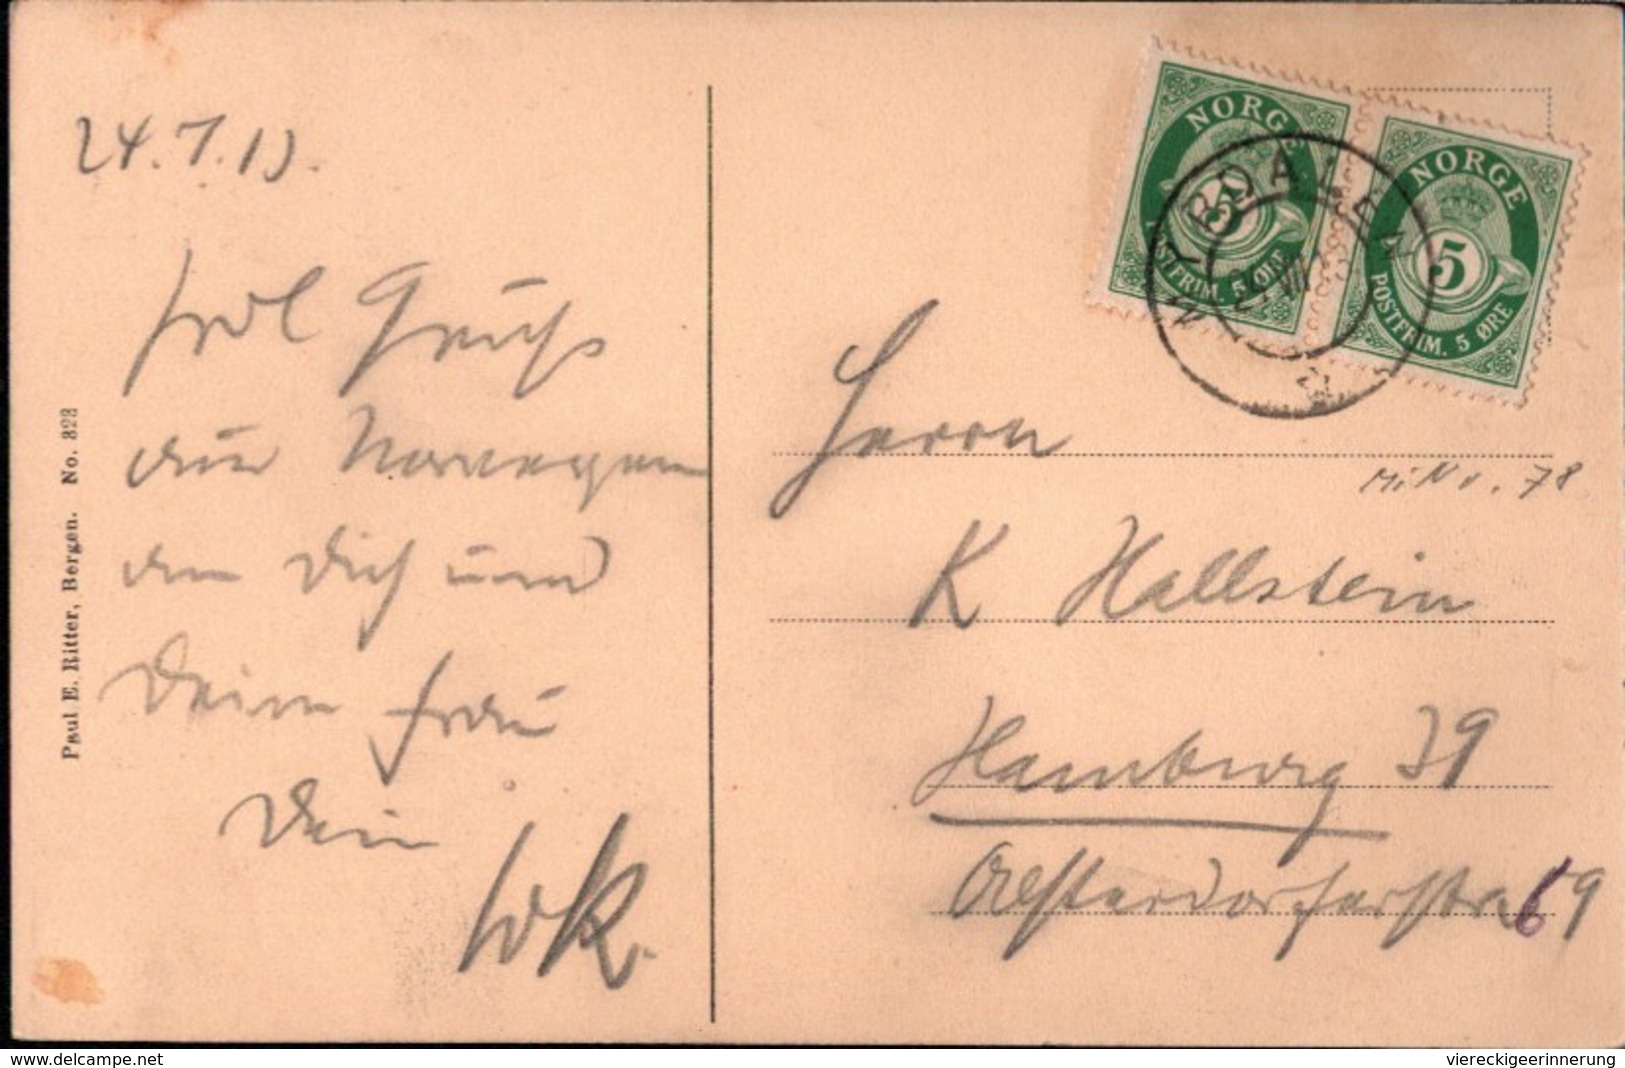 24.7.13.
Frdl Grüße
aus Norwegen
an Dich und
Deine Frau
Dein
Paul E. Ritter, Bergen. No. 323
NORGE
5
POSTFRIM. 5 ØRE
NORGE
5
POSTFRIM. 5 ØRE
MYRDALEN
24 VII
Herrn
MiNr. 78
K Hallstein
Hamburg 39
Alsterdorferstr. 69
www.delcampe.net
viereckigeerinnerung